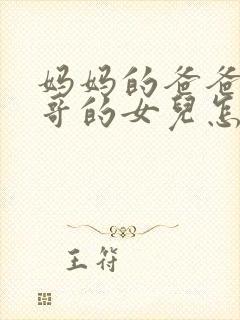 妈妈的爸爸
哥的女兒怎
王符